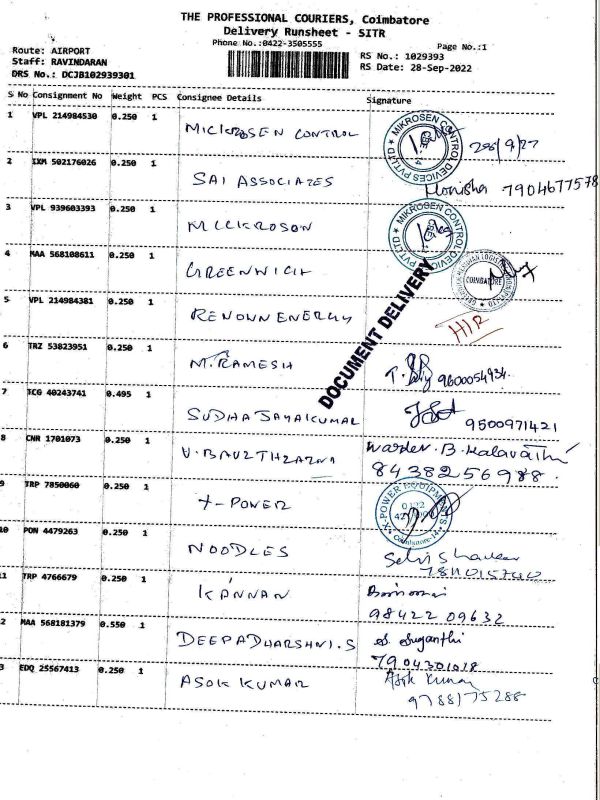 THE PROFESSIONAL COURIERS, Coimbatore
Delivery Runsheet - SITR
Phone No.:0422-3505555
Page No.:1
Route: AIRPORT
RS No.: 1029393
Staff: RAVINDARAN
RS Date: 28-Sep-2022
DRS No.: DCJB102939301
S No Consignment No Weight PCS Consignee Details Signature
1 VPL 214984530 0.250 1 MICKROSEN CONTROL
MIKROSEN CONTROL DEVICES PVT LTD
2 IXM 502176026 0.250 1 SAI ASSOCIATES
Monisha 7904677578
3 VPL 939603393 0.250 1 MICKROSON
MIKROSEN CONTROL DEVICES PVT LTD
4 MAA 568108611 0.250 1 GREENWICH
COIMBATORE
DOCUMENT DELIVERY
5 VPL 214984381 0.250 1 RENOWN ENERGY
H/R
6 TRZ 53823951 0.250 1 M. RAMESH
9600054934
7 TCG 40243741 0.495 1 SUDHA JAYAKUMAR
9500971421
8 CNR 1701073 0.250 1
Warden. B. Kalavathi
8438256988.
9 TRP 7850060 0.250 1 X-POWER
X-POWER EQUIPMENTS
0422
Coimbatore-14
10 PON 4479263 0.250 1 NOODLES
11 TRP 4766679 0.250 1 KANNAN
98422 09632
2 MAA 568181379 0.550 1 DEEPADHARSHNI.S
S. Suganthi
7904301018
3 EDQ 25567413 0.250 1 ASOK KUMAR
Asok Kumar
9788175288